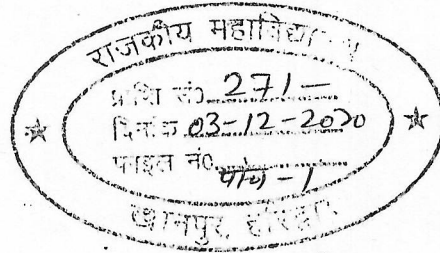 राजकीय महाविद्यालय
प्राप्ति सं० 271 —
दिनांक 03-12-2020
फाइल नं०
खानपुर, हरिद्वार